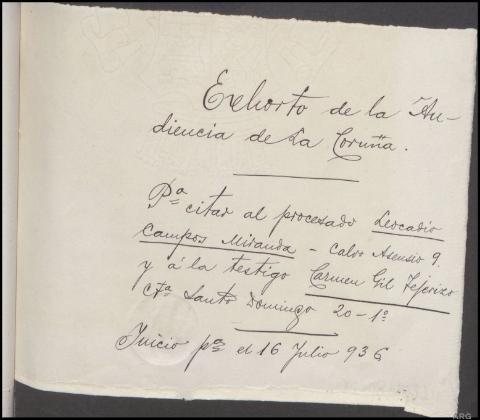 Exhorto de la Au-
diencia de La Coruña.
Pª citar al procesado Leocadio
Campos Miranda - Calvo Asensio 9.
y á la testigo Carmen Gil Tejerizo
Cta Santo Domingo 20 - 1º
Juicio pª el 16 Julio 936
ARG